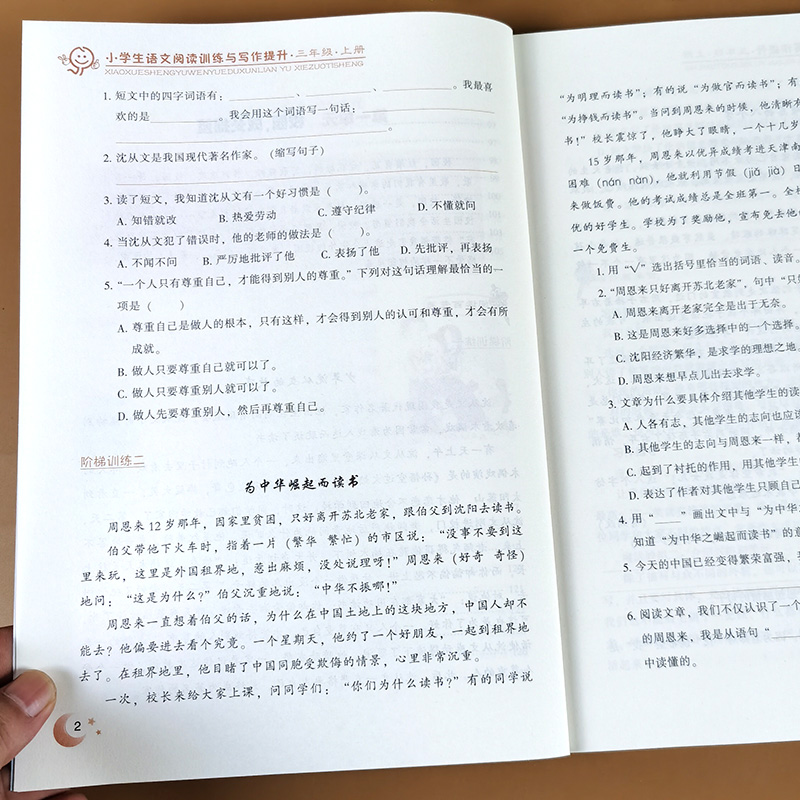 小学生语文阅读训练与写作提升·三年级·上册
XIAOXUESHENGYUWENYUEDUXUNLIAN YU XIEZUOTISHENG
1. 短文中的四字词语有：、、。我最喜
欢的是。我会用这个词语写一句话：
。
2. 沈从文是我国现代著名作家。（缩写句子）
3. 读了短文，我知道沈从文有一个好习惯是（ ）。
A. 知错就改 B. 热爱劳动 C. 遵守纪律 D. 不懂就问
4. 当沈从文犯了错误时，他的老师的做法是（ ）。
A. 不闻不问 B. 严厉地批评了他 C. 表扬了他 D. 先批评，再表扬
5. “一个人只有尊重自己，才能得到别人的尊重。”下列对这句话理解最恰当的一
项是（ ）
A. 尊重自己是做人的根本，只有这样，才会得到别人的认可和尊重，才会有所
成就。
B. 做人只要尊重自己就可以了。
C. 做人只要尊重别人就可以了。
D. 做人先要尊重别人，然后再尊重自己。
阶梯训练二
为中华崛起而读书
周恩来12岁那年，因家里贫困，只好离开苏北老家，跟伯父到沈阳去读书。
伯父带他下火车时，指着一片（繁华 繁忙）的市区说：“没事不要到这
里来玩，这里是外国租界地，惹出麻烦，没处说理呀！”周恩来（好奇 奇怪）
地问：“这是为什么？”伯父沉重地说：“中华不振哪！”
周恩来一直想着伯父的话，为什么在中国土地上的这块地方，中国人却不
能去？他偏要进去看个究竟。一个星期天，他约了一个好朋友，一起到租界地
去了。在租界地里，他目睹了中国同胞受欺侮的情景，心里非常沉重。
一次，校长来给大家上课，问同学们：“你们为什么读书？”有的同学说
2
“为明理而读书”；有的说“为做官而读书”；有
“为挣钱而读书”。当问到周恩来的时候，他清晰
书！”校长震惊了，他睁大了眼睛，一个十几岁
15岁那年，周恩来以优异成绩考进天津南
困难（nán nàn），他就利用节假（jiā jià）日
来做饭费。他的考试成绩总是全班第一。全校
优的好学生。学校为了奖励他，宣布免去他
一个免费生。
1. 用“√”选出括号里恰当的词语、读音。
2. “周恩来只好离开苏北老家”，句中“只好
A. 周恩来离开老家完全是出于无奈。
B. 这是周恩来好多选择中的一个选择。
C. 沈阳经济繁华，是求学的理想之地。
D. 周恩来想早点儿出去求学。
3. 文章为什么要具体介绍其他学生的读
A. 人各有志，其他学生的志向也应该
B. 其他学生的志向与周恩来一样，都
C. 起到了衬托的作用，用其他学生
D. 表达了作者对其他学生只顾自己
4. 用“”画出文中与“为中华
知道“为中华之崛起而读书”的意
5. 今天的中国已经变得繁荣富强，
6. 阅读文章，我们不仅认识了一个
的周恩来，我是从语句“
中读懂的。